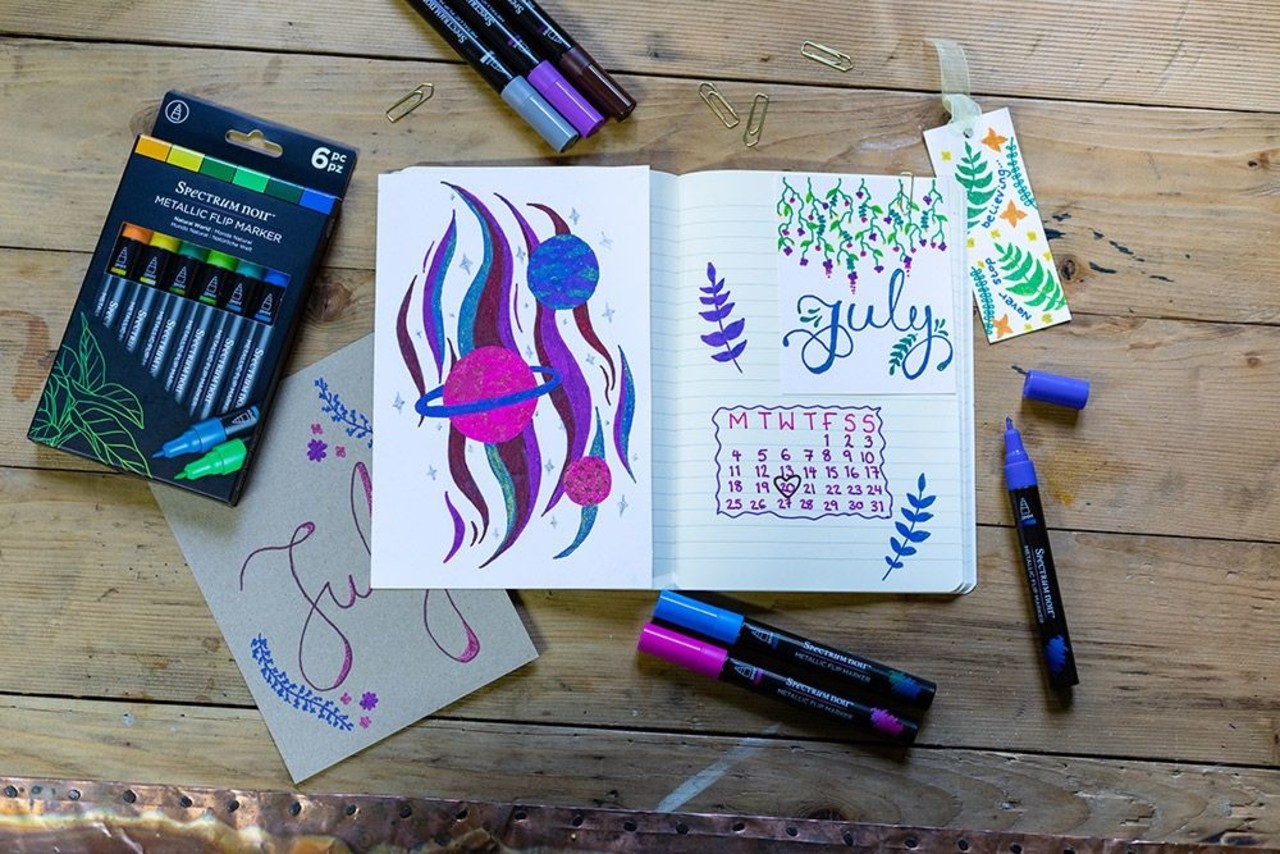 6 pc
pz
SPECTRUM NOIR™
METALLIC FLIP MARKER
Natural World | Monde Naturel
Mondo Natural | Natürliche Welt
July
never stop
believing...
M T W T F S S
1 2 3
4 5 6 7 8 9 10
11 12 13 14 15 16 17
18 19 20 21 22 23 24
25 26 27 28 29 30 31
Jul
SPECTRUM NOIR™
METALLIC FLIP MARKER
SPECTRUM NOIR™
METALLIC FLIP MARKER
SPECTRUM NOIR™
METALLIC FLIP MARKER